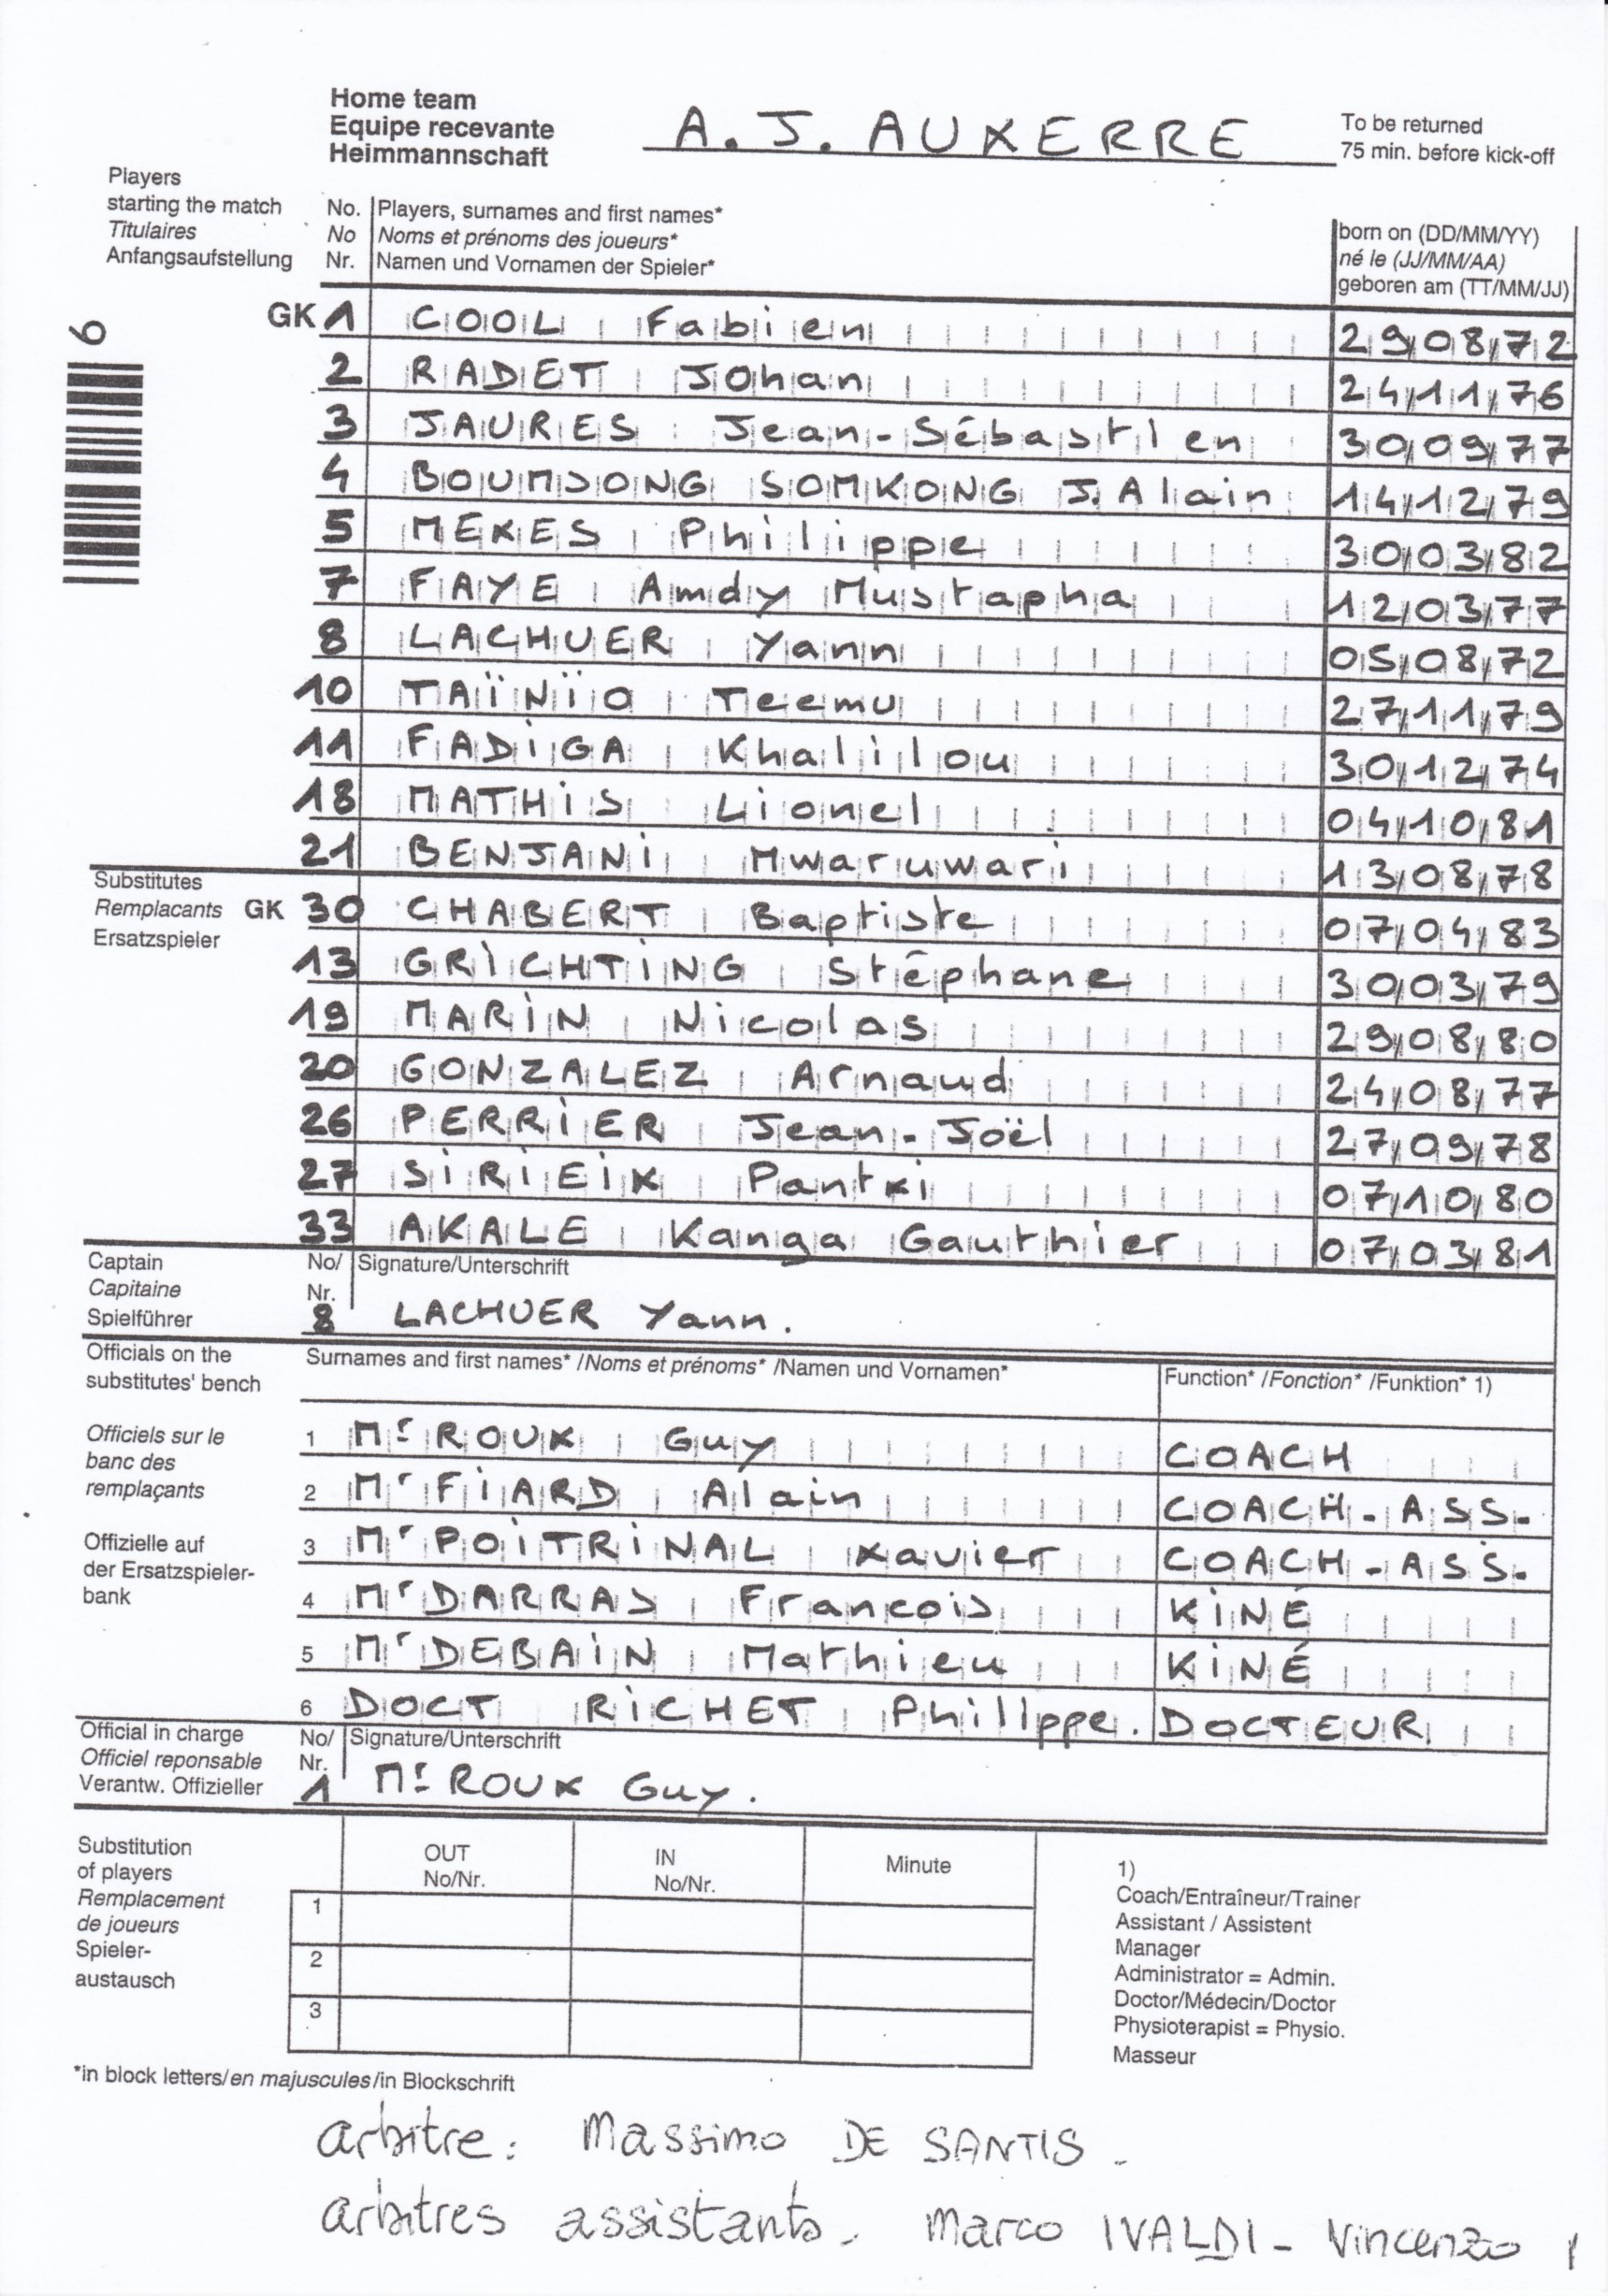 Home team
Equipe recevante
Heimmannschaft
A. J. AUXERRE
To be returned
75 min. before kick-off
Players
starting the match
Titulaires
Anfangsaufstellung
No. Players, surnames and first names*
No Noms et prénoms des joueurs*
Nr. Namen und Vornamen der Spieler*
born on (DD/MM/YY)
né le (JJ/MM/AA)
geboren am (TT/MM/JJ)
6
GK 1 COOL Fabien 29/08/72
2 RADET Johan 24/11/76
3 JAURES Jean-Sébastien 30/09/77
4 BOUMSONG SOMKONG J.Alain 14/12/79
5 MEXES Philippe 30/03/82
7 FAYE Amdy Mustapha 12/03/77
8 LACHUER Yann 05/08/72
10 TAÏNÏO Teemu 27/11/79
11 FADiGA Khalilou 30/12/74
18 MATHiS Lionel 04/10/81
21 BENJANi Mwaruwari 13/08/78
Substitutes
Remplacants
Ersatzspieler
GK 30 CHABERT Baptiste 07/04/83
13 GRiCHTiNG Stéphane 30/03/79
19 MARiN Nicolas 29/08/80
20 GONZALEZ Arnaud 24/08/77
26 PERRiER Jean-Joël 27/09/78
27 SiRiEiX Pantxi 07/10/80
33 AKALE Kanga Gauthier 07/03/81
Captain
Capitaine
Spielführer
No/ Signature/Unterschrift
Nr.
8 LACHUER Yann.
Officials on the
substitutes' bench
Surnames and first names* /Noms et prénoms* /Namen und Vornamen*
Function* /Fonction* /Funktion* 1)
Officiels sur le
banc des
remplaçants
Offizielle auf
der Ersatzspieler-
bank
1 Mr ROUX Guy COACH
2 Mr FiARD Alain COACH-ASS.
3 Mr POiTRiNAL Xavier COACH-ASS.
4 Mr DARRAS Francois KiNÉ
5 Mr DEBAiN Mathieu KiNÉ
6 DOCT RiCHET Philippe. DOCTEUR
Official in charge
Officiel reponsable
Verantw. Offizieller
No/ Signature/Unterschrift
Nr.
1 Mr ROUX Guy.
Substitution
of players
Remplacement
de joueurs
Spieler-
austausch
OUT
No/Nr.
IN
No/Nr.
Minute
1
2
3
1)
Coach/Entraîneur/Trainer
Assistant / Assistent
Manager
Administrator = Admin.
Doctor/Médecin/Doctor
Physioterapist = Physio.
Masseur
*in block letters/en majuscules/in Blockschrift
arbitre: Massimo DE SANTIS -
arbitres assistants - Marco IVALDI - Vincenzo